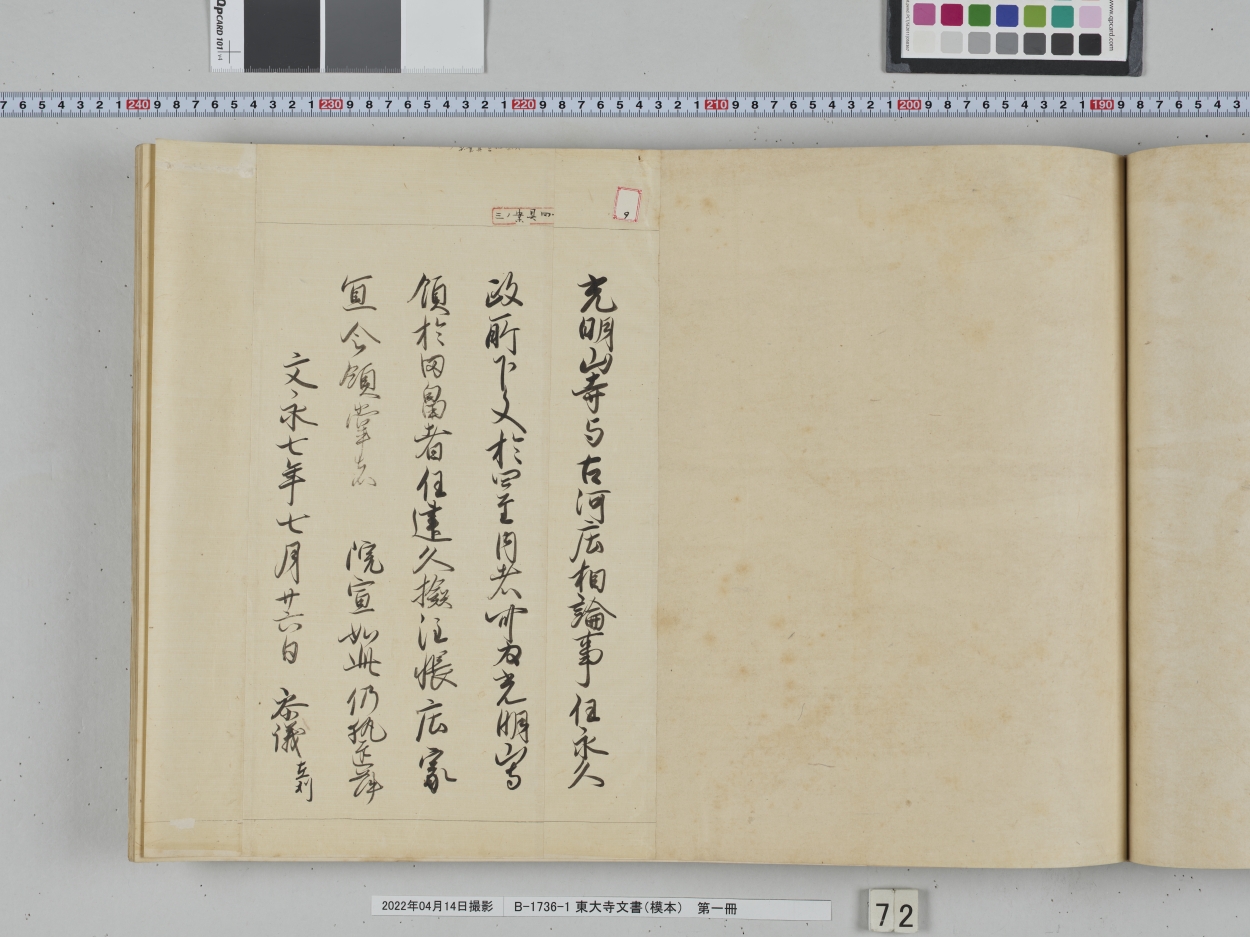 光明山寺与古河庄相論事任永久
政所下文於四至内者可為光明山寺
領於田畠者任建久撿注帳庄家
宜令領掌者 院宣如此仍執達如件
文永七年七月廿六日 参儀在判
三ノ葉具四
9
2022年04月14日撮影 B-1736-1 東大寺文書(模本) 第一冊
72
QpCARD 101 v4
www.qpcard.com
7 6 5 4 3 2 1 240 9 8 7 6 5 4 3 2 1 230 9 8 7 6 5 4 3 2 1 220 9 8 7 6 5 4 3 2 1 210 9 8 7 6 5 4 3 2 1 200 9 8 7 6 5 4 3 2 1 190 9 8 7 6 5 4 3